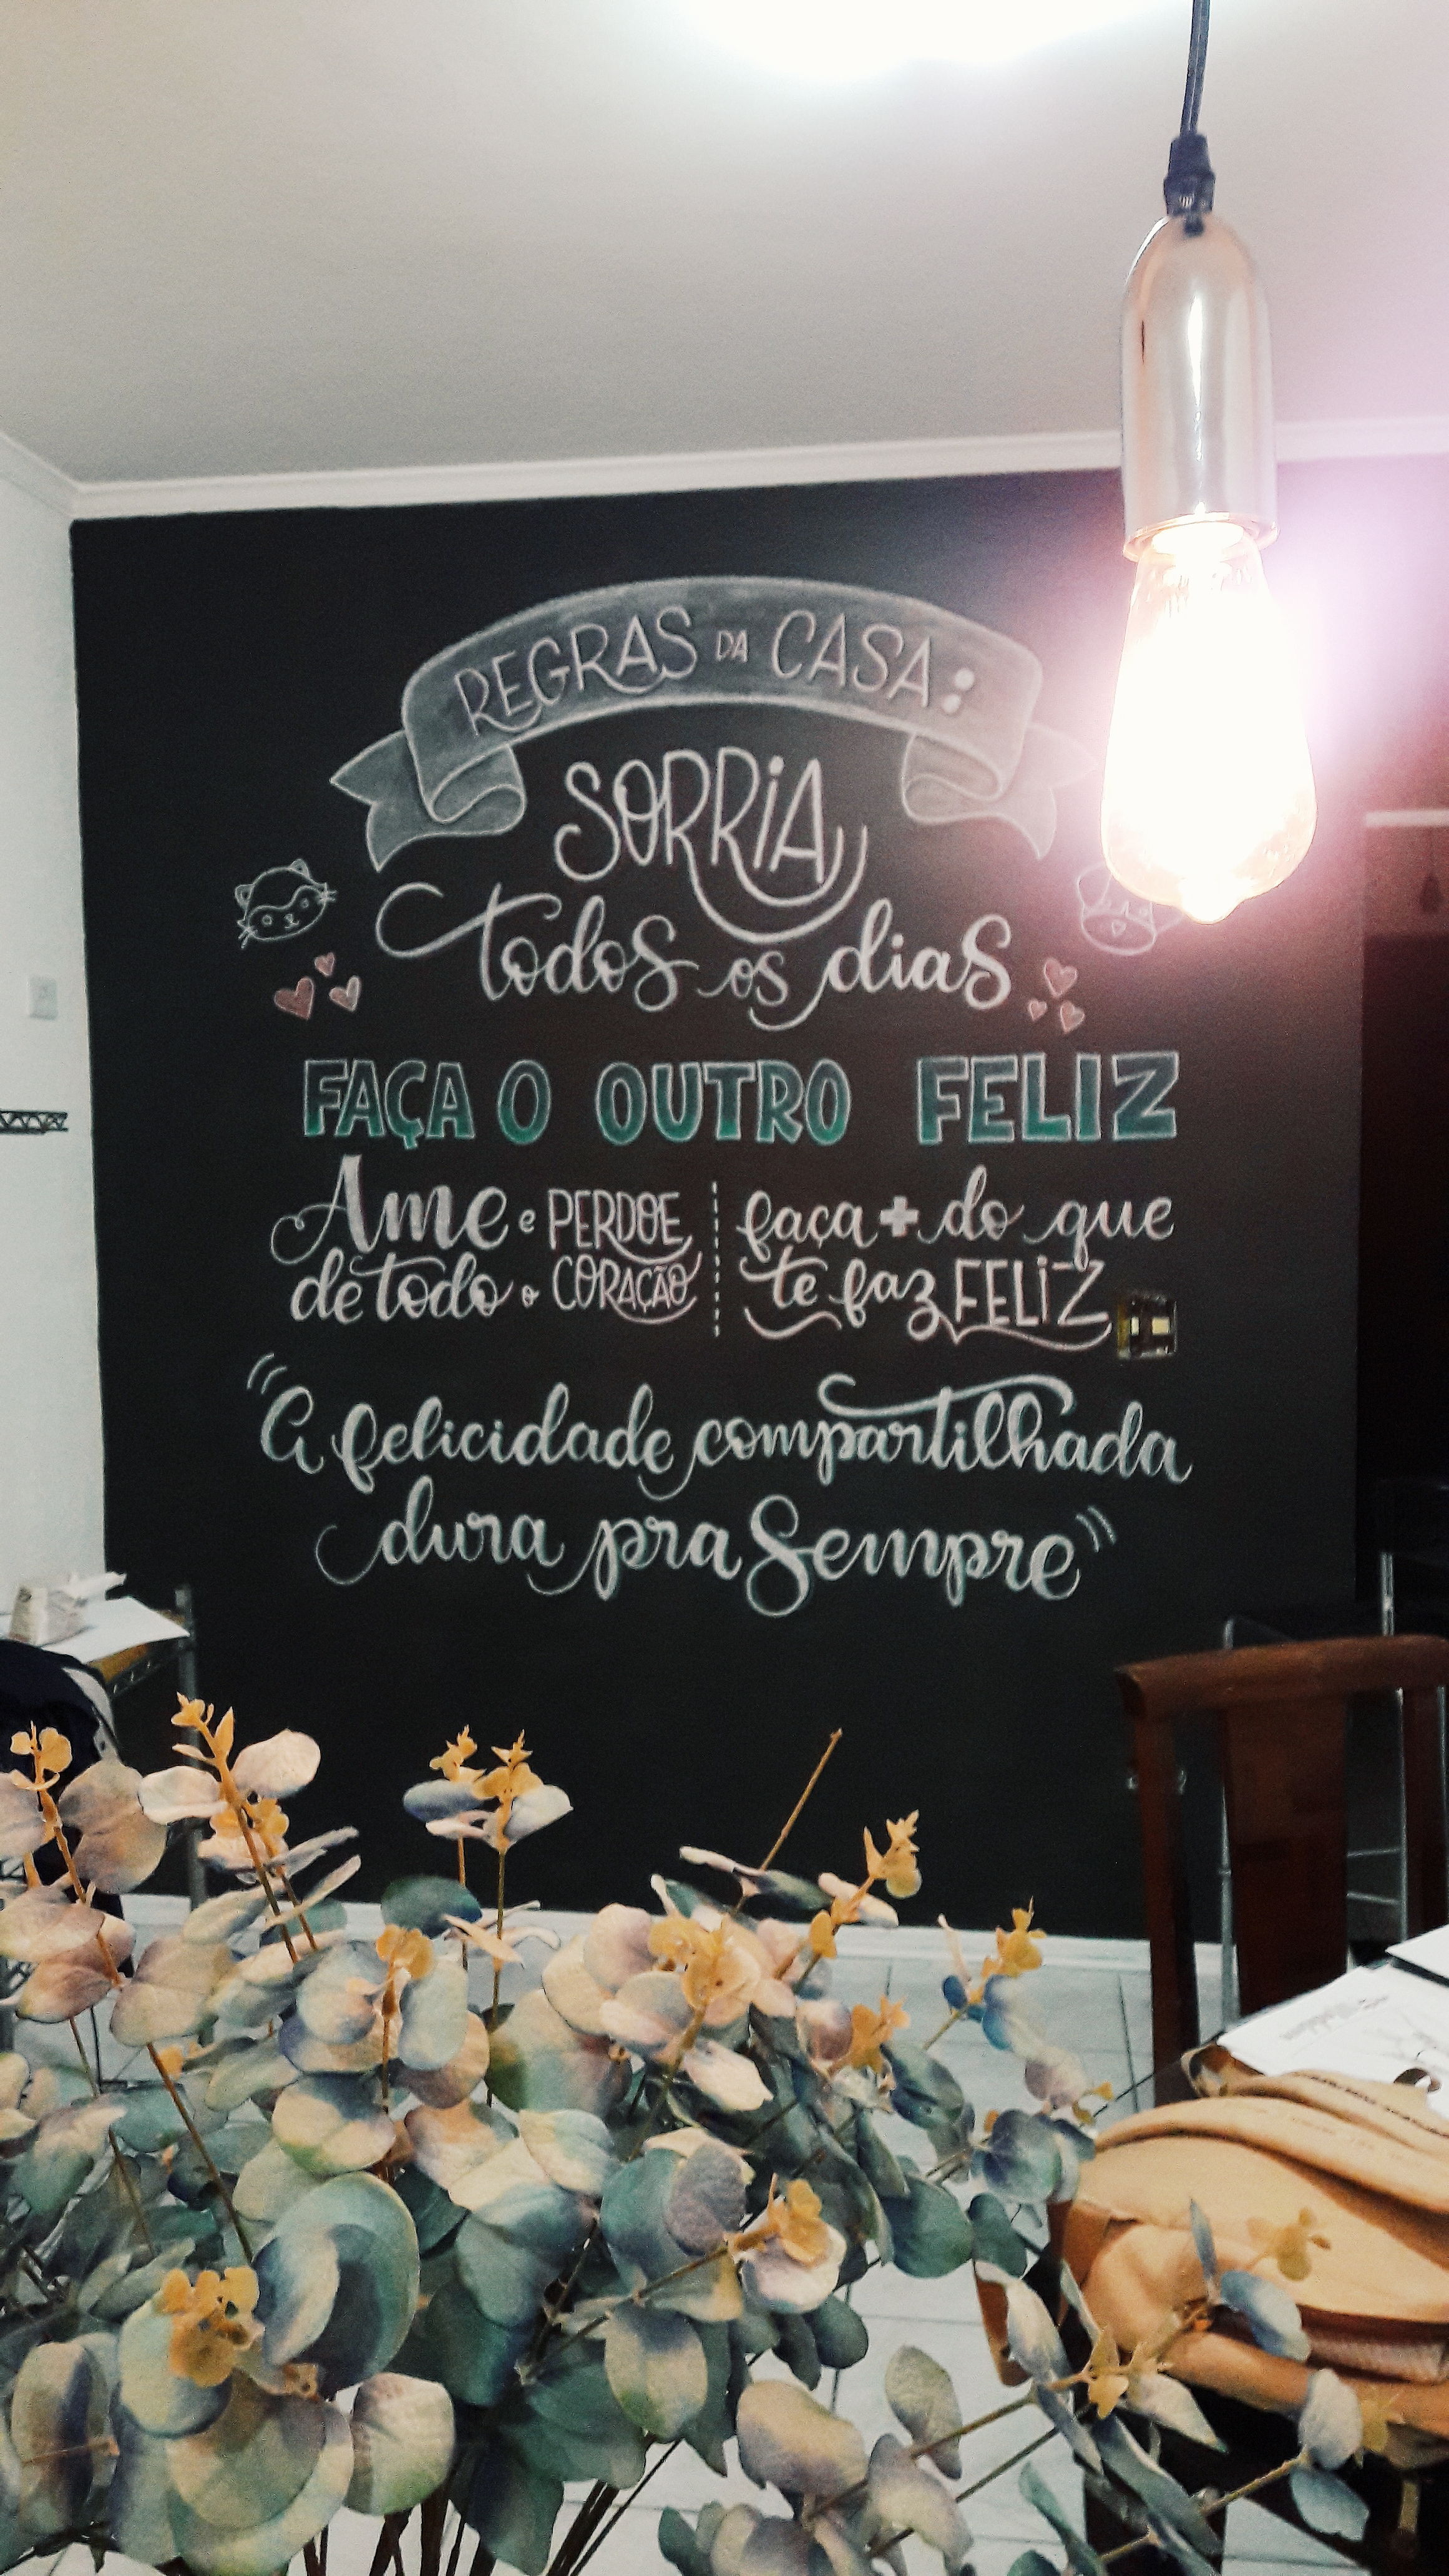 REGRAS DA CASA:
SORRIA
todos os dias
FAÇA O OUTRO FELIZ
Ame e PERDOE
de todo o CORAÇÃO
faça + do que
te faz FELIZ
"A felicidade compartilhada
dura pra Sempre"